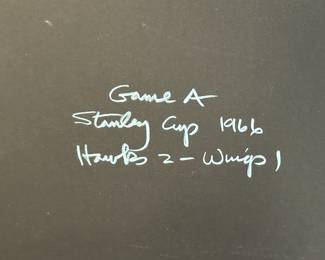 Game A
Stanley Cup 1966
Hawks 2 - Wings 1